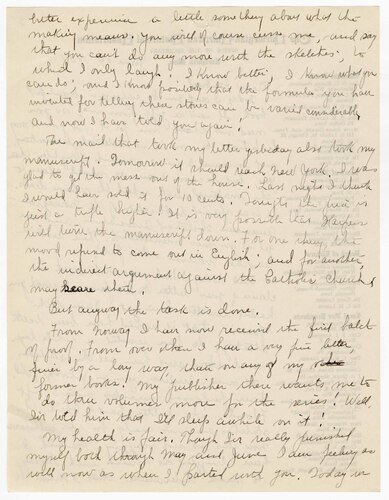 better experience a little something about what the
making means. You will of course curse me, and say
that you can't do any more with the sketches, to
which I only laugh! I know better; I know what you
can do; and I know positively that the formula you have
invented for telling these stories can be varied considerably
and now I have told you again!
The mail that took my letter yesterday also took my
manuscript. Tomorrow it should reach New York. I was
glad to get the mess out of the house. Last night I think
I would have sold it for 10 cents. Tonight the price is
just a trifle higher. It is very possible that Harpers
will turn the manuscript down. For one thing the
mood refused to come out in English; and for another
the indirect argument against the Catholic Church
may scare them.
But anyway the task is done.
From Norway I have now received the first batch
of proof. From over there I have a very fine letter,
finer by a long way than on any of my
former books. My publisher there wants me to
do three volumes more for the series! Well,
I've told him that I'll sleep awhile on it!
My health is fair. Though I've really punished
myself both through May and June I am feeling as
well now as when I parted with you. Today we